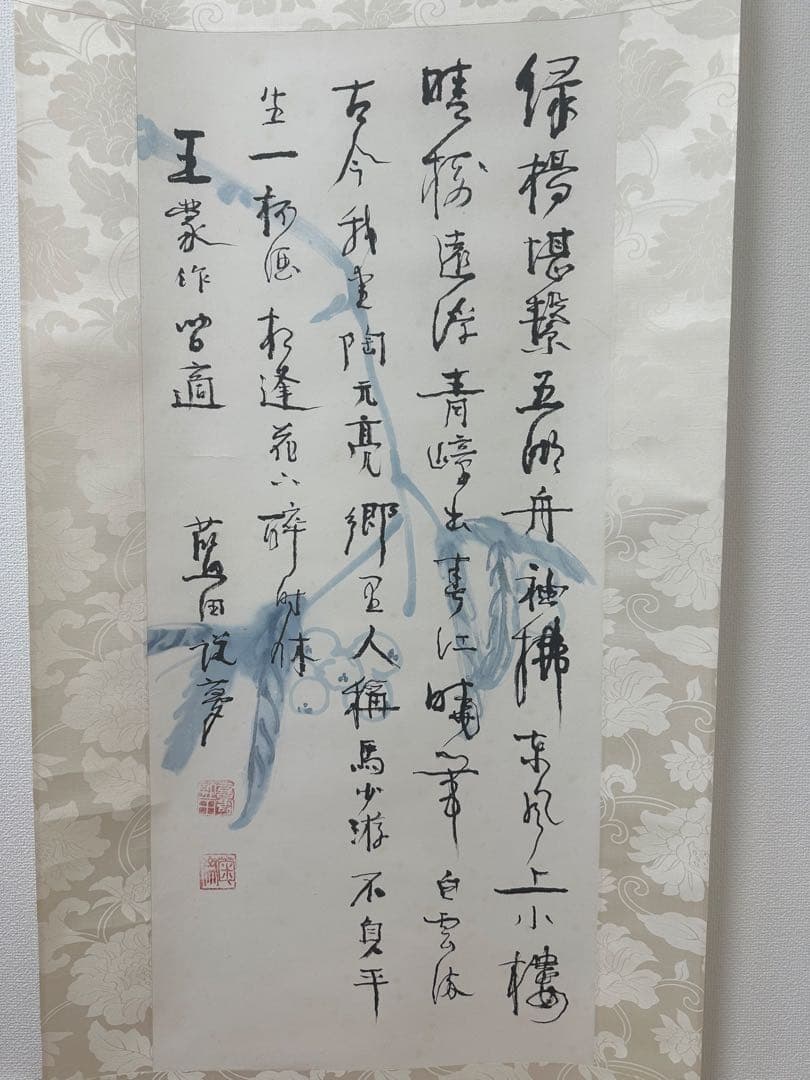 緑楊堪繫五湖舟袖拂東風上小樓
晴樹遠浮青嶂出春江曉帶白雲流
古今我愛陶元亮鄉里人稱馬少游不負平
生一杯酒相逢花下醉時休
王蒙作 適 藍田説夢